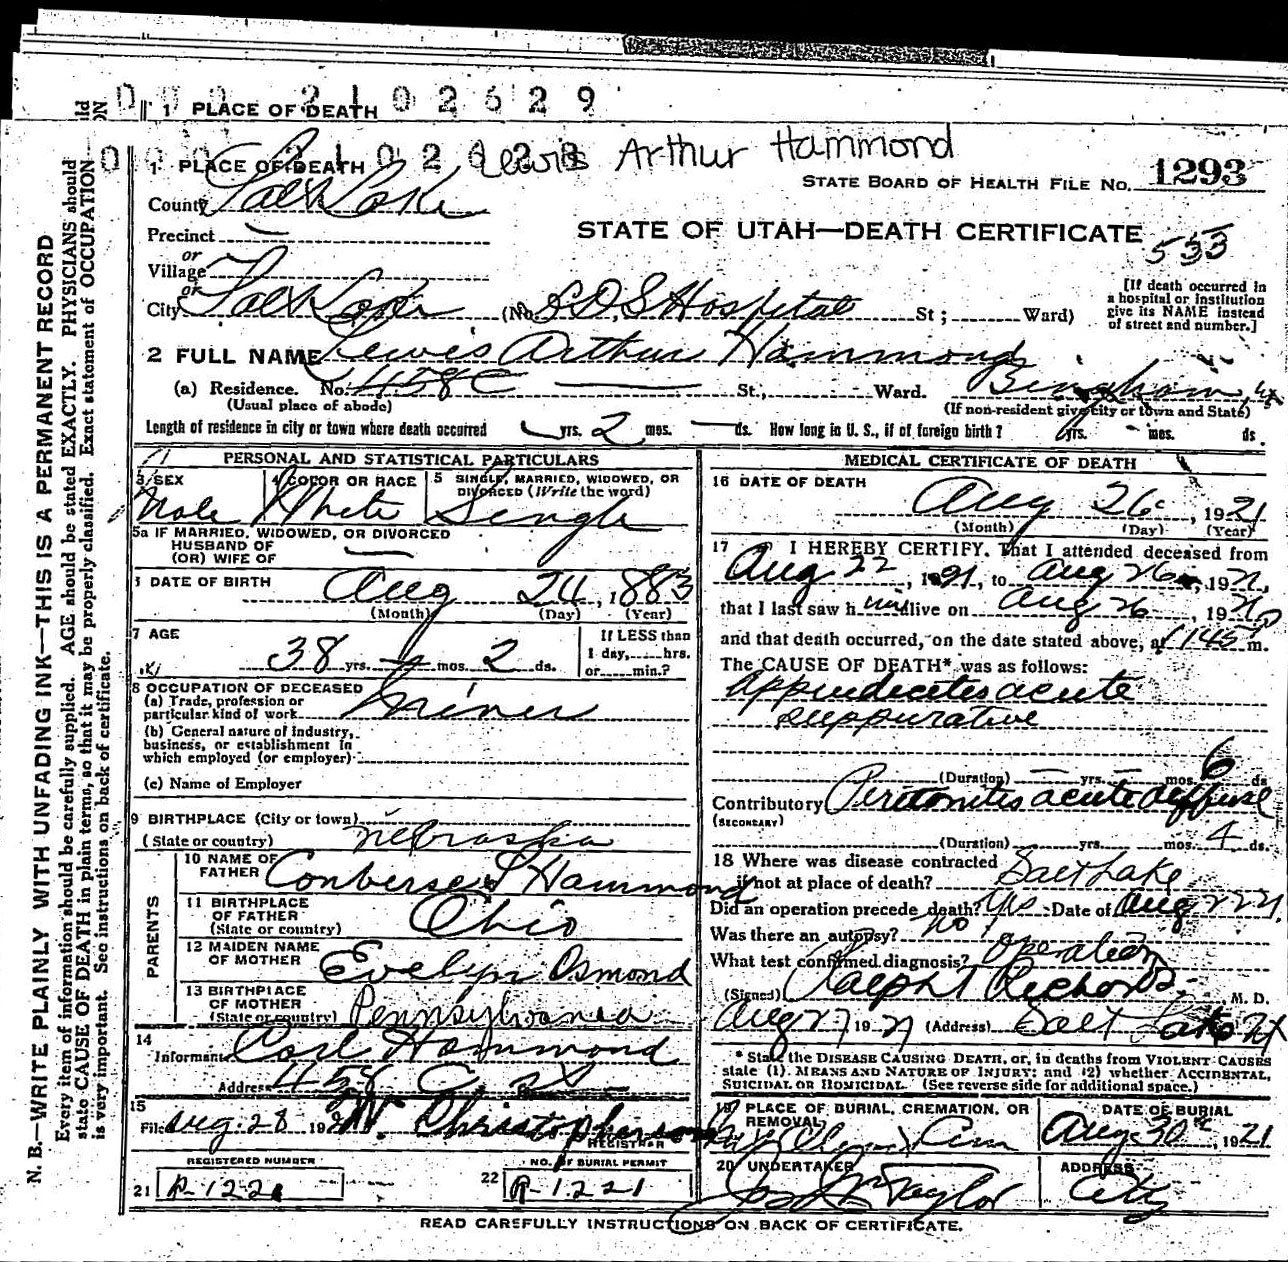 0 0 0 2 1 0 2 6 2 9
1 PLACE OF DEATH
Lewis Arthur Hammond
1 PLACE OF DEATH
STATE BOARD OF HEALTH FILE NO. 1293
County Salt Lake
STATE OF UTAH—DEATH CERTIFICATE
533
Precinct
or
Village
or
City Salt Lake (No. L D S Hospital St; Ward)
[If death occurred in
a hospital or institution
give its NAME instead
of street and number.]
2 FULL NAME Lewis Arthur Hammond
(a) Residence. No. 458 C St., Ward. Bingham, Ut
(Usual place of abode) (If non-resident give city or town and State)
Length of residence in city or town where death occurred yrs. 2 mos. ds. How long in U. S., if of foreign birth? yrs. mos. ds.
PERSONAL AND STATISTICAL PARTICULARS
3 SEX Male
4 COLOR OR RACE White
5 SINGLE, MARRIED, WIDOWED, OR
DIVORCED (Write the word) Single
5a IF MARRIED, WIDOWED, OR DIVORCED
HUSBAND OF
(OR) WIFE OF
6 DATE OF BIRTH Aug 24, 1883
(Month) (Day) (Year)
7 AGE 38 yrs. mos. 2 ds.
If LESS than
1 day, hrs.
or min.?
8 OCCUPATION OF DECEASED
(a) Trade, profession or
particular kind of work Miner
(b) General nature of industry,
business, or establishment in
which employed (or employer)
(c) Name of Employer
9 BIRTHPLACE (City or town)
(State or country) Nebraska
PARENTS
10 NAME OF
FATHER Converse S Hammond
11 BIRTHPLACE
OF FATHER
(State or country) Ohio
12 MAIDEN NAME
OF MOTHER Evelyn Osmond
13 BIRTHPLACE
OF MOTHER
(State or country) Pennsylvania
14
Informant Carl Hammond
Address 458 C St
15
Filed Aug. 28 192 W. Christopherson
REGISTRAR
REGISTERED NUMBER
21 P-1221
NO. OF BURIAL PERMIT
22 P-1221
MEDICAL CERTIFICATE OF DEATH
16 DATE OF DEATH
Aug 26, 1921
(Month) (Day) (Year)
17 I HEREBY CERTIFY, That I attended deceased from
Aug 22, 1921, to Aug 26, 1921,
that I last saw him alive on Aug 26, 1921
and that death occurred, on the date stated above, at 1145 m.
The CAUSE OF DEATH* was as follows:
Appendicitis acute
suppurative
(Duration) yrs. mos. 6 ds
Contributory Peritonitis acute diffuse
(SECONDARY)
(Duration) yrs. mos. 4 ds.
18 Where was disease contracted
if not at place of death? Salt Lake
Did an operation precede death? Yes Date of Aug 22 21
Was there an autopsy? No
What test confirmed diagnosis? Operation
(Signed) Ralph T Richards M. D.
Aug 27 1921 (Address) Salt Lake Ut
* State the DISEASE CAUSING DEATH, or, in deaths from VIOLENT CAUSES
state (1). MEANS AND NATURE OF INJURY; and (2) whether ACCIDENTAL,
SUICIDAL OR HOMICIDAL. (See reverse side for additional space.)
19 PLACE OF BURIAL, CREMATION, OR
REMOVAL
Cem
DATE OF BURIAL
Aug 30, 1921
20 UNDERTAKER
Jos. Wm Taylor
ADDRESS
City
READ CAREFULLY INSTRUCTIONS ON BACK OF CERTIFICATE.
N. B.—WRITE PLAINLY WITH UNFADING INK—THIS IS A PERMANENT RECORD
Every item of information should be carefully supplied. AGE should be stated EXACTLY. PHYSICIANS should
state CAUSE OF DEATH in plain terms, so that it may be properly classified. Exact statement of OCCUPATION
is very important. See instructions on back of certificate.